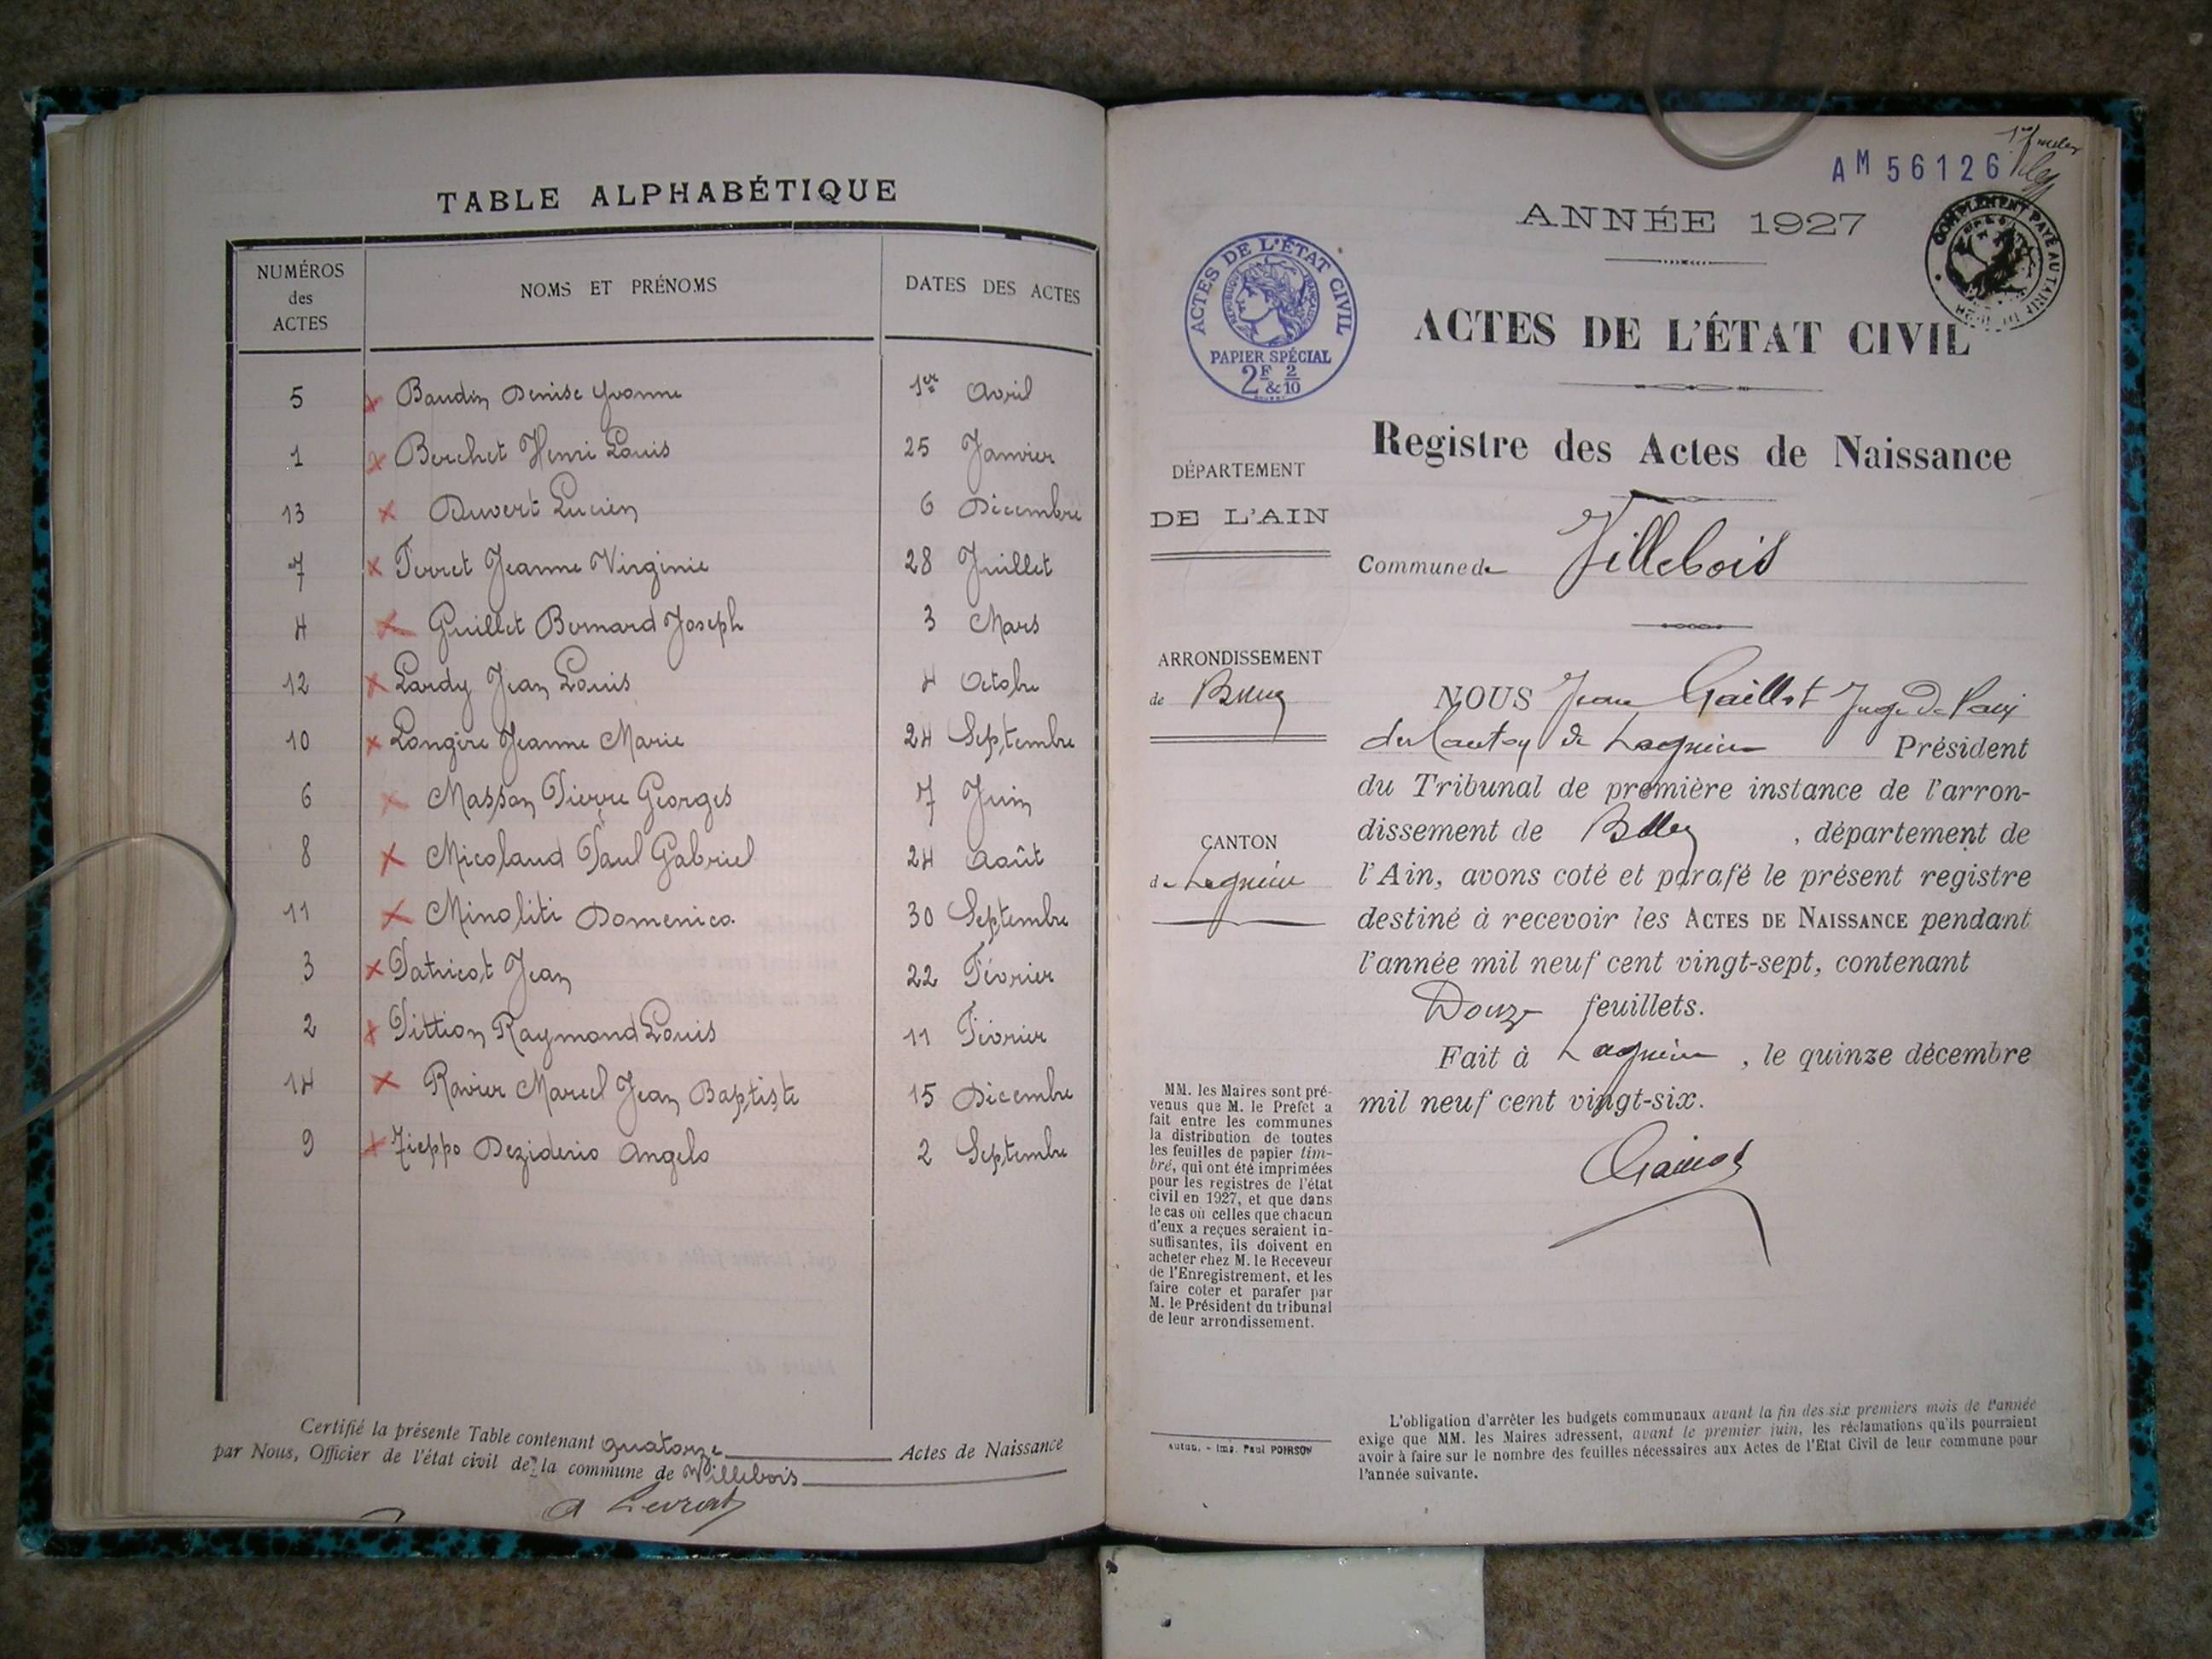 TABLE ALPHABÉTIQUE
NUMÉROS des ACTES NOMS ET PRÉNOMS DATES DES ACTES
5 Baudin Denise Yvonne 1er Avril
1 Berchet Henri Louis 25 Janvier
13 Duvert Lucien 6 Décembre
7 Ferret Jeanne Virginie 28 Juillet
4 Guillet Bernard Joseph 3 Mars
12 Lardy Jean Louis 4 Octobre
10 Longère Jeanne Marie 24 Septembre
6 Masson Pierre Georges 7 Juin
8 Micolaud Paul Gabriel 24 Août
11 Minoliti Domenico 30 Septembre
3 Patricot Jean 22 Février
2 Pittion Raymond Louis 11 Février
14 Ravier Marcel Jean Baptiste 15 Décembre
9 Zieppo Deziderio Angelo 2 Septembre
Certifié la présente Table contenant quatorze Actes de Naissance
par Nous, Officier de l'état civil de la commune de Villebois
A Levrat
AM 56126
COMPLÉMENT PAYÉ AU TARIF
ANNÉE 1927
ACTES DE L'ÉTAT CIVIL
RÉPUBLIQUE FRANÇAISE
PAPIER SPÉCIAL
2F & 2/10
ACTES DE L'ÉTAT CIVIL
Registre des Actes de Naissance
DÉPARTEMENT
DE L'AIN
Commune de Villebois
ARRONDISSEMENT
de Belley
CANTON
de Lagnieu
NOUS Jean Gaillot Juge de Paix
du Canton de Lagnieu Président
du Tribunal de première instance de l'arron-
dissement de Belley, département de
l'Ain, avons coté et parafé le présent registre
destiné à recevoir les ACTES DE NAISSANCE pendant
l'année mil neuf cent vingt-sept, contenant
Douze feuillets.
Fait à Lagnieu, le quinze décembre
mil neuf cent vingt-six.
MM. les Maires sont pré-
venus que M. le Prefet a
fait entre les communes
la distribution de toutes
les feuilles de papier tim-
bré, qui ont été imprimées
pour les registres de l'état
civil en 1927, et que dans
le cas où celles que chacun
d'eux a reçues seraient in-
suffisantes, ils doivent en
acheter chez M. le Receveur
de l'Enregistrement, et les
faire coter et parafer par
M. le Président du tribunal
de leur arrondissement.
Autun. - Imp. Paul POIRSON
L'obligation d'arrêter les budgets communaux avant la fin des six premiers mois de l'année
exige que MM. les Maires adressent, avant le premier juin, les réclamations qu'ils pourraient
avoir à faire sur le nombre des feuilles nécessaires aux Actes de l'Etat Civil de leur commune pour
l'année suivante.